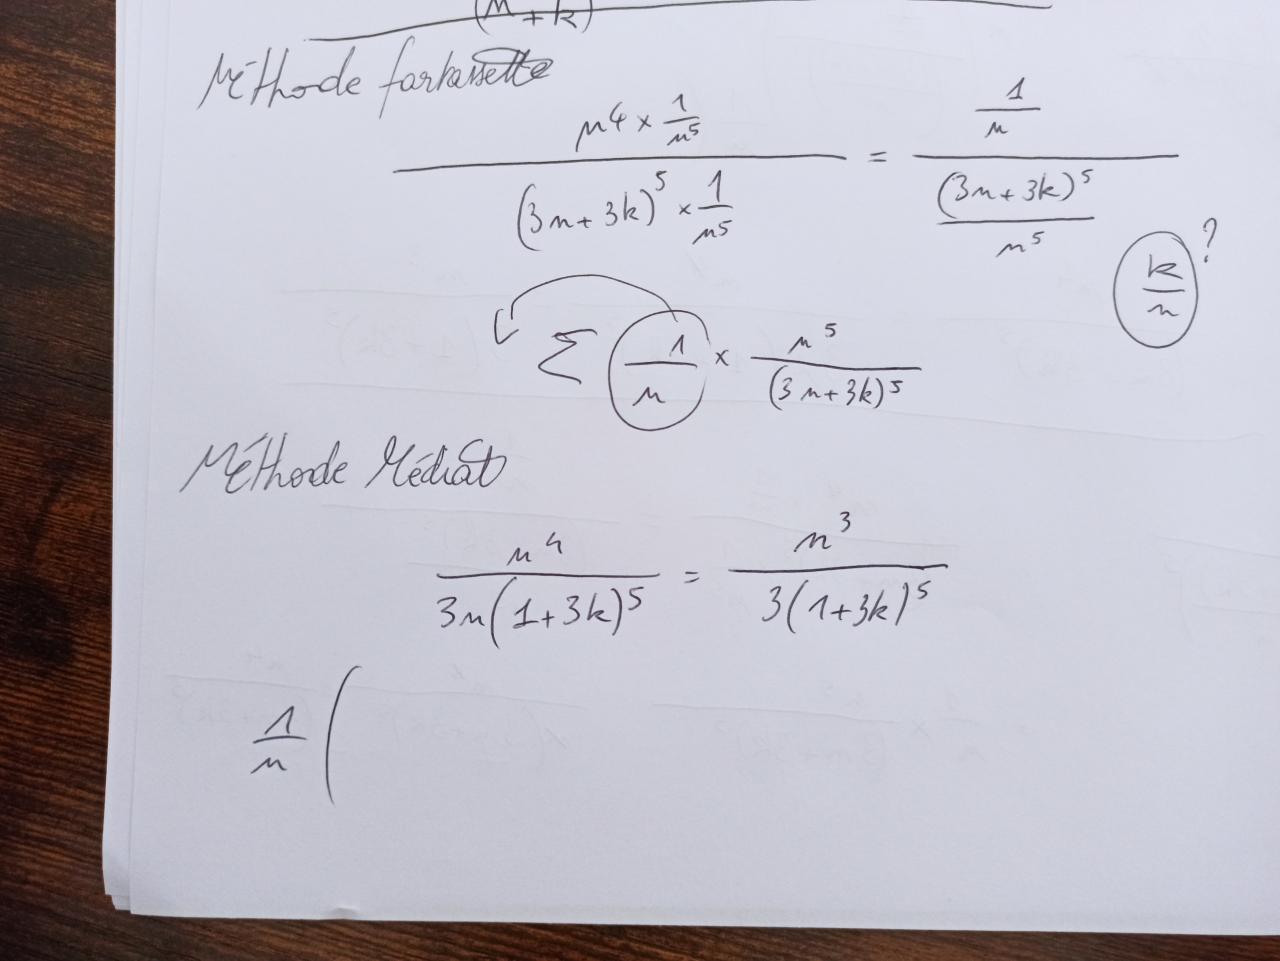 (n + k)
Méthode farkassette
n^4 × 1/n^5 / (3n + 3k)^5 × 1/n^5 = 1/n / (3n + 3k)^5/n^5
k/n ?
Σ 1/n × n^5/(3n + 3k)^5
Méthode Médiat
n^4/3n(1 + 3k)^5 = n^3/3(1 + 3k)^5
1/n (